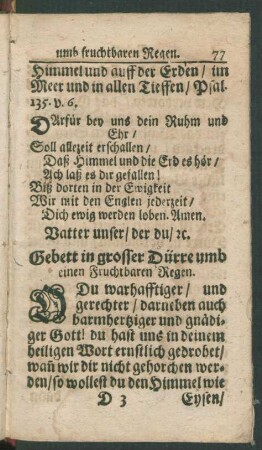 umb fruchtbaren Regen. 77
Himmel und auff der Erden / im
Meer und in allen Tieffen / Psal.
135. v. 6.
DArfür bey uns dein Ruhm und
Ehr /
Soll allezeit erschallen /
Daß Himmel und die Erd es hör /
Ach laß es dir gefallen!
Biß dorten in der Ewigkeit
Wir mit den Englen jederzeit /
Dich ewig werden loben. Amen.
Vatter unser / der du / ꝛc.
Gebett in grosser Dürre umb
einen Fruchtbaren Regen.
O Du warhafftiger / und
gerechter / darneben auch
barmhertziger und gnädi-
ger Gott! du hast uns in deinem
heiligen Wort ernstlich gedrobet /
wañ wir dir nicht gehorchen wer-
den / so wollest du den Himmel wie
D 3 Eysen /